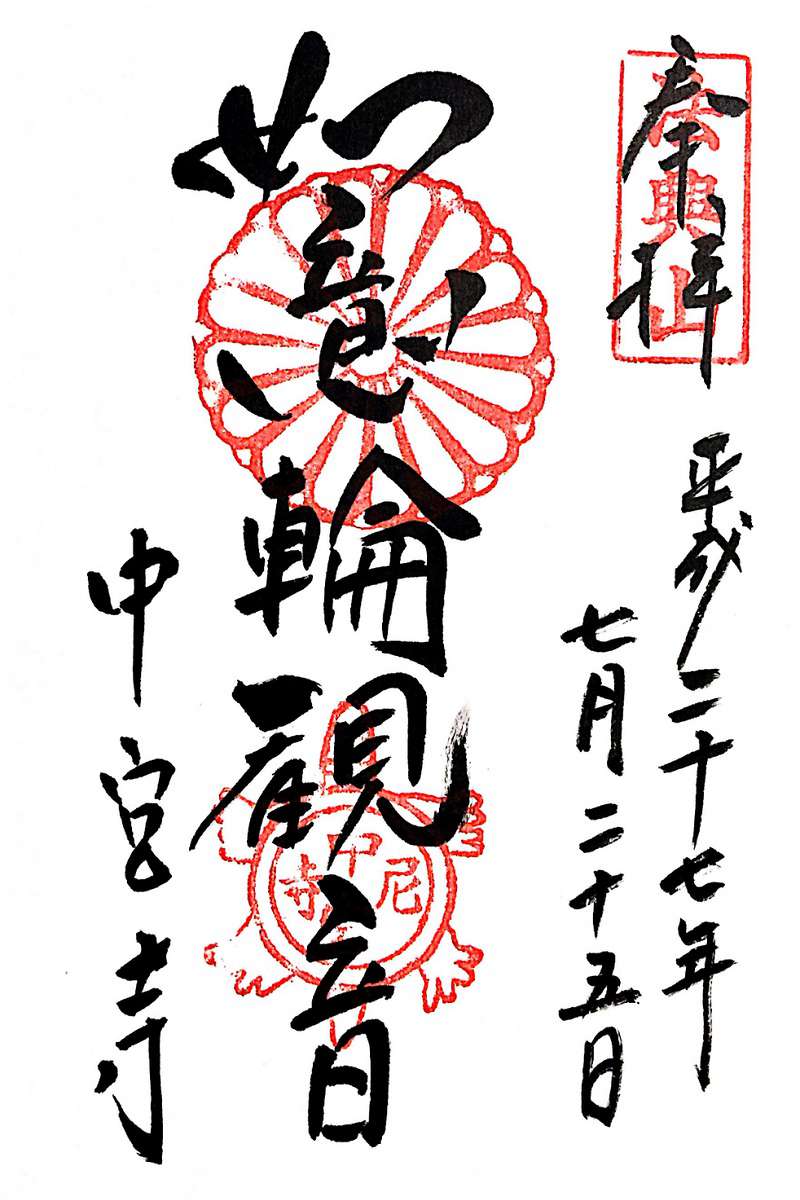 奉拝
法興山
平成二十七年
七月二十五日
如意輪観音
中宮寺
中
尼
寺